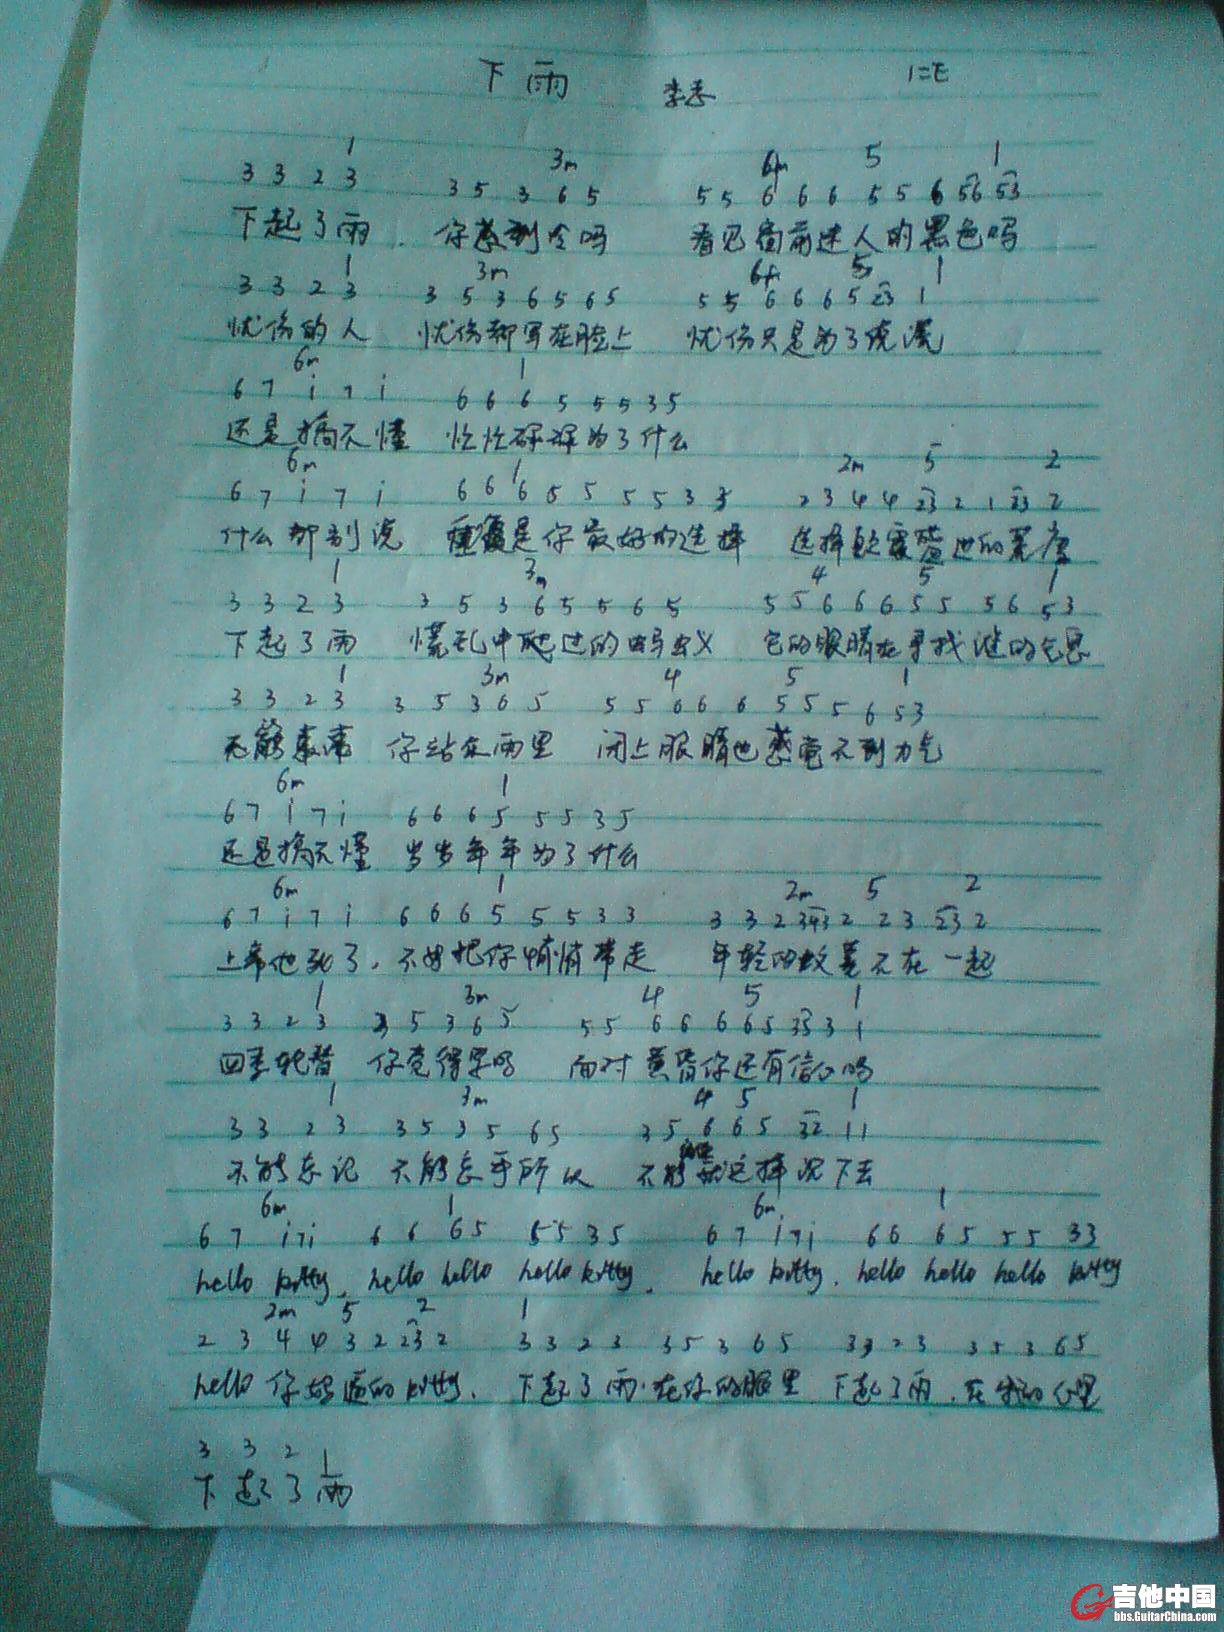 下雨 李志 1=E
1 3m 6m 5 1
3 3 2 3 3 5 3 6 5 5 5 6 6 6 5 5 6 56 53
下起了雨. 你感到冷吗 看见窗前迷人的黑色吗
1 3m 6m 5 1
3 3 2 3 3 5 3 6 5 6 5 5 5 6 6 6 5 23 1
忧伤的人 忧伤都写在脸上 忧伤只是为了
6m 1
6 7 i 7 i 6 6 6 5 5 5 3 5
还是搞不懂 忙忙碌碌为了什么
6m 1 2m 5 2
6 7 i 7 i 6 6 6 5 5 5 5 3 3 2 3 4 4 23 2 1 23 2
什么都别说 是你最好的选择 选择
1 3m 4 5 1
3 3 2 3 3 5 3 6 5 5 6 5 5 5 6 6 6 5 5 5 6 5 3
下起了雨 慌乱中爬过的蚂蚁 它的眼睛在寻找谜的气息
1 3m 4 5 1
3 3 2 3 3 5 3 6 5 5 5 6 6 6 5 5 5 6 5 3
无能 你站在雨里 闭上眼睛也感觉不到力气
6m 1
6 7 i 7 i 6 6 6 5 5 5 3 5
还是搞不懂 岁岁年年为了什么
6m 1 2m 5 2
6 7 i 7 i 6 6 6 5 5 5 3 3 3 3 2 343 2 2 3 23 2
上帝他死了. 不如把你悄悄带走 年轻的 不在一起
1 3m 4 5 1
3 3 2 3 3 5 3 6 5 5 5 6 6 6 6 5 35 3 1
四季轮替 你觉得累吗 面对黄昏你还有信心吗
1 3m 4 5 1
3 3 2 3 3 5 3 5 6 5 3 5 6 6 5 32 1 1
不能忘记 不能忘乎所以 不能就这样沉下去
6m 1 6m 1
6 7 i7i 6 6 6 5 5 5 3 5 6 7 i7i 6 6 6 5 5 5 3 3
hello kitty. hello hello hello kitty. hello kitty. hello hello hello kitty
2m 5 2 1
2 3 4 4 3 2 23 2 3 3 2 3 3 5 3 6 5 3 3 2 3 3 5 3 6 5
hello 你 的 kitty. 下起了雨. 在你的眼里 下起了雨. 在我的心里
3 3 2 1
下起了雨
吉他中国
bbs.GuitarChina.com